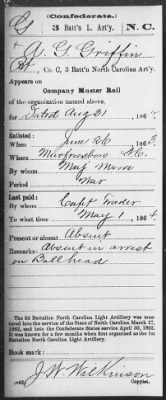 (Confederate.)
G 3 Batt'n L. Art'y. N. C.
A. G. Griffin
Co. C, 3 Batt'n North Carolina Art'y.
Appears on
Company Muster Roll
of the organization named above,
for Dated Aug 31, 1864.
Enlisted:
When June 26, 1863.
Where Murfreesboro N.C.
By whom Maj. Moore
Period War
Last paid:
By whom Capt
To what time May 1, 1864.
Present or absent Absent
Remarks: Absent in arrest
on Bald head
The 3d Battalion North Carolina Light Artillery was mus-
tered into the service of the State of North Carolina March 17,
1862, and into the Confederate States service April 30, 1862.
It was known for a few months when first organized as the 1st
Battalion North Carolina Light Artillery.
Book mark:
J W Wilkinson
(642) Copyist.